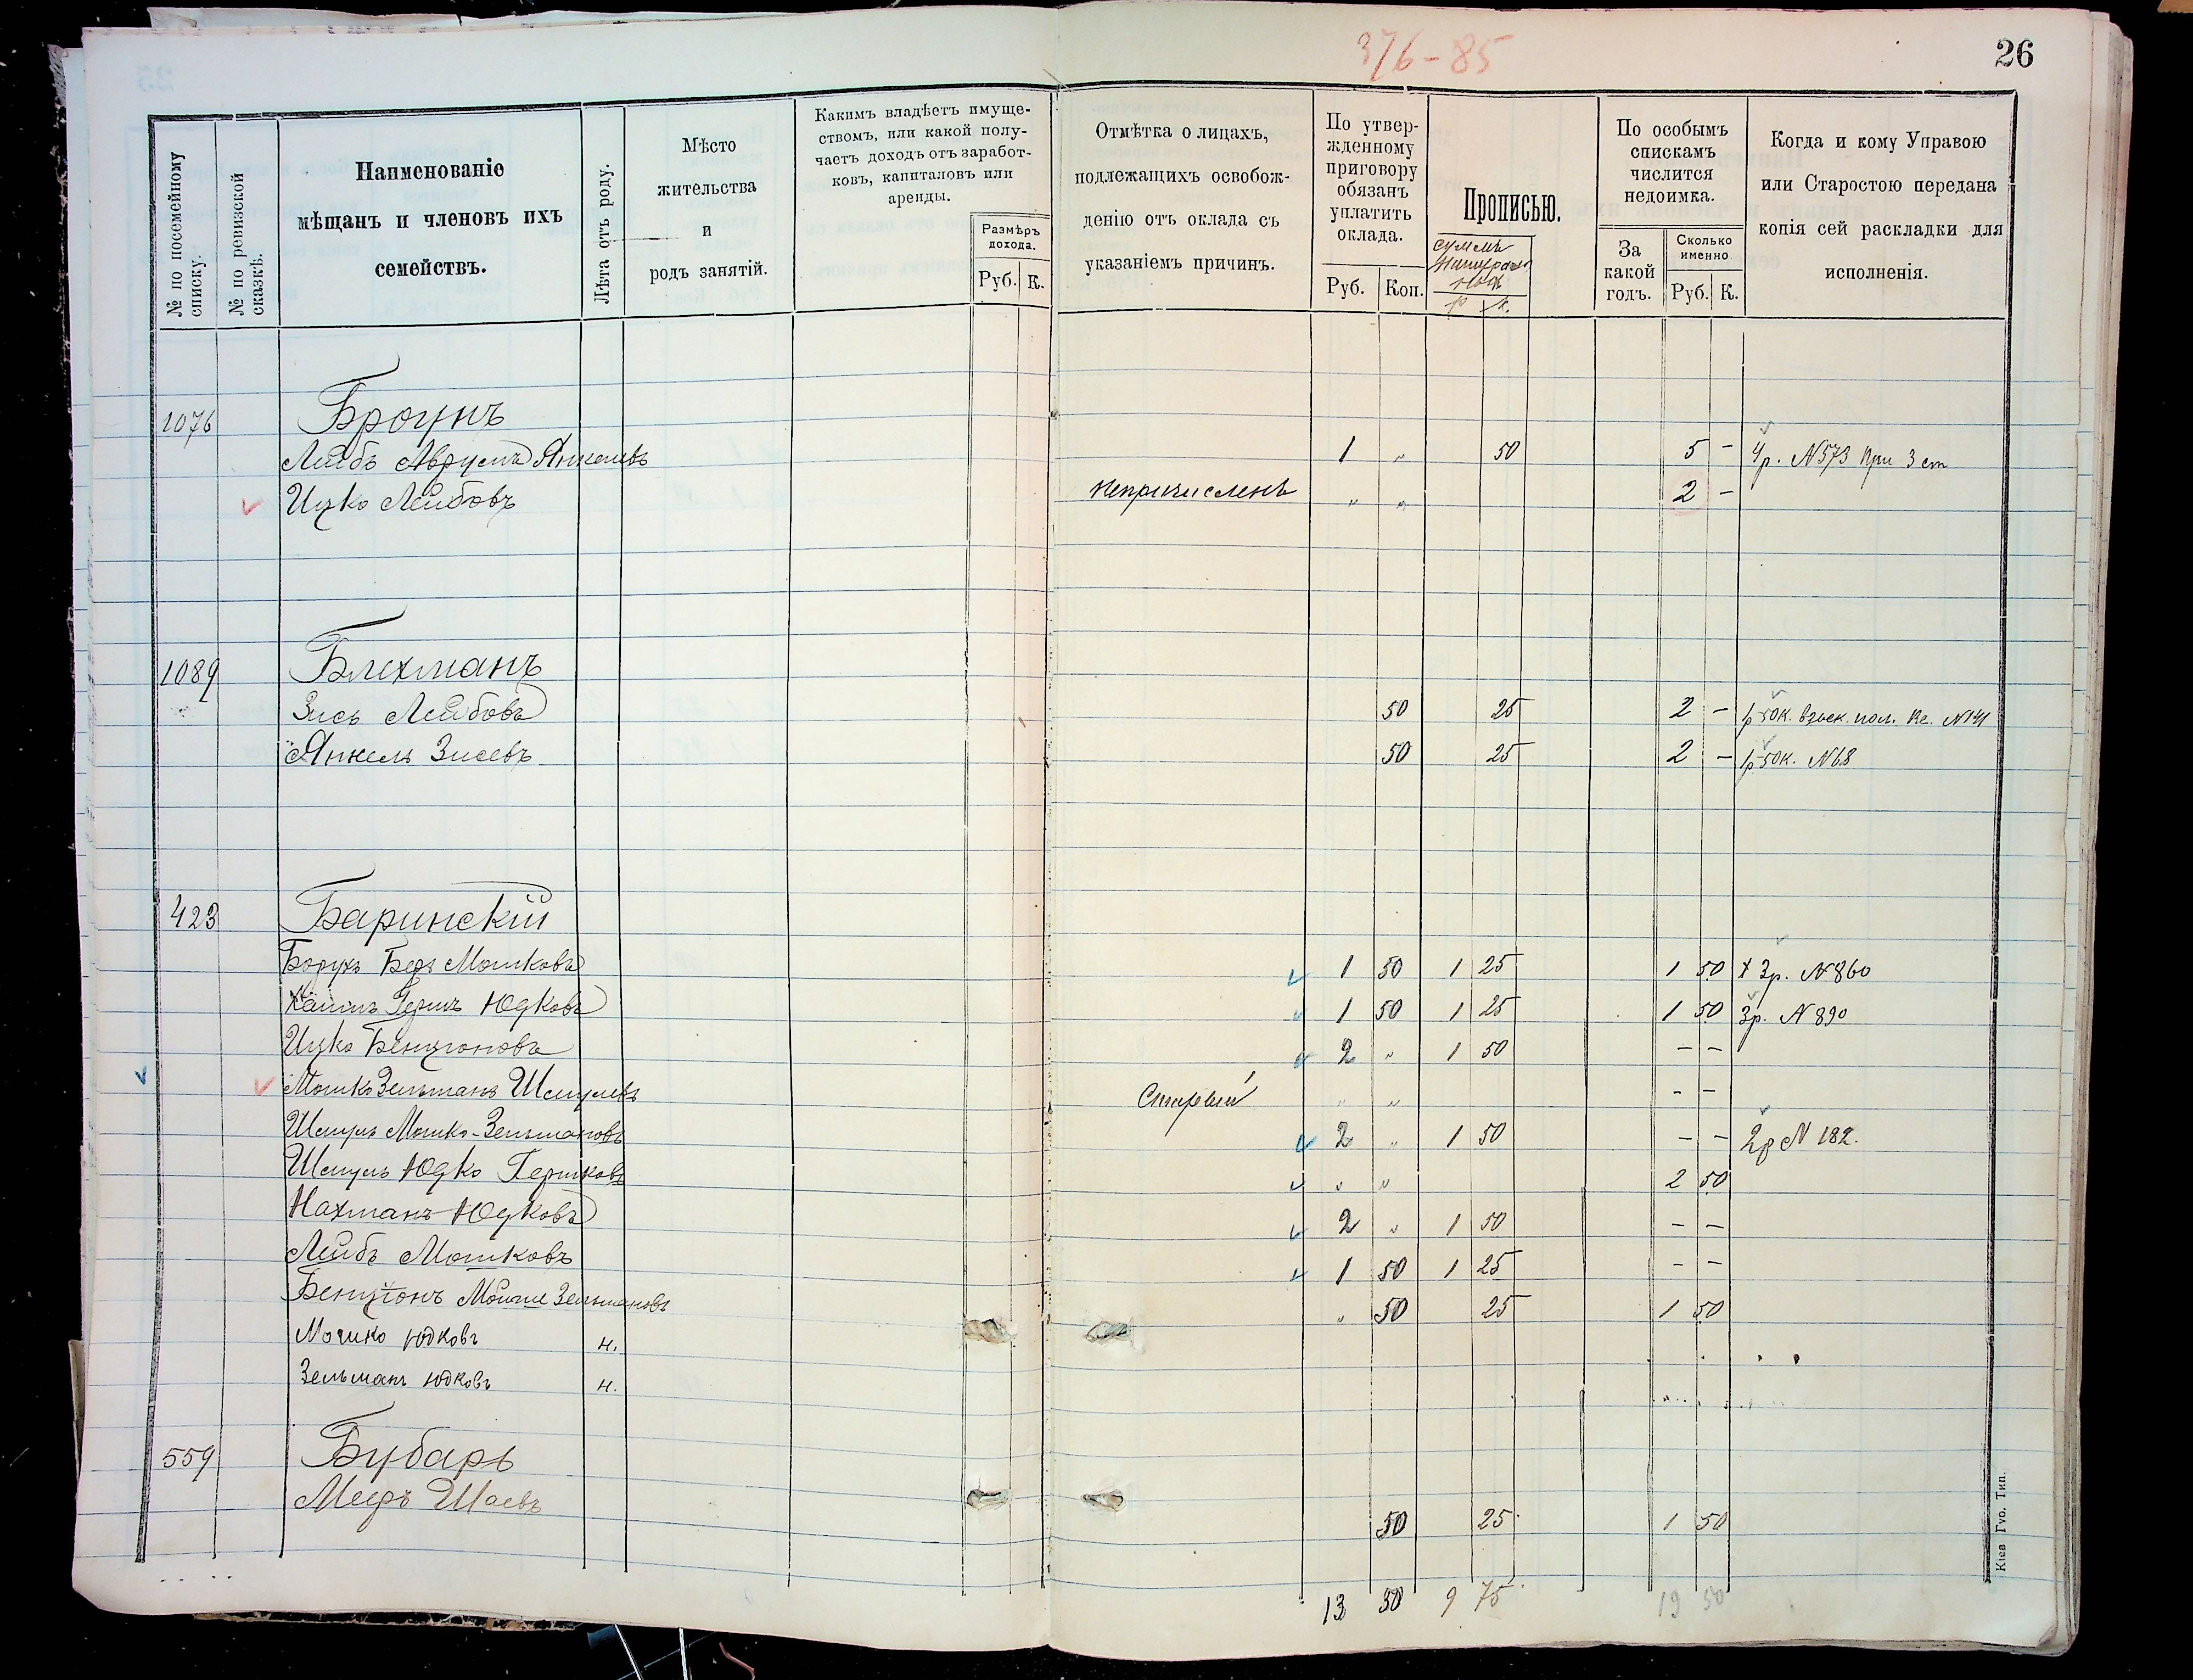 376-85
26
№ по посемейному списку.
№ по ревизской сказкѣ.
Наименованіе мѣщанъ и членовъ ихъ семействъ.
Лѣта отъ роду.
Мѣсто жительства и родъ занятій.
Какимъ владѣетъ имуще-
ствомъ, или какой полу-
чаетъ доходъ отъ заработ-
ковъ, капиталовъ или
аренды.
Размѣръ дохода.
Руб. К.
Отмѣтка о лицахъ,
подлежащихъ освобож-
денію отъ оклада съ
указаніемъ причинъ.
По утвер-
жденному
приговору
обязанъ
уплатить
оклада.
Руб. Коп.
Прописью.
р к.
По особымъ
спискамъ
числится
недоимка.
За какой годъ.
Сколько именно
Руб. К.
Когда и кому Управою
или Старостою передана
копія сей раскладки для
исполненія.
1076 Броунъ
Лейбъ Аврумъ Янкелевъ 1 „ 50 5 - 4р. N573 При 3 ст
Ицко Лейбовъ Непричисленъ „ „ 2 -
1089 Блехманъ
Зись Лейбовъ 50 25 2 - 1р 50к. взыск. пол. N141
Янкель Зисевъ 50 25 2 - 1р 50к. N68
423 Баринскій
Борухъ Беръ Мошковъ 1 50 1 25 1 50 х 3р. N860
Хаимъ Гершъ Юдковъ 1 50 1 25 1 50 3р. N890
Ицко Бенционовъ 2 „ 1 50 - -
Мошко Зельманъ Шмулевъ Старый „ „ - -
Шмуль Мошко-Зельмановъ 2 „ 1 50 - - 2р N 182.
Шмуль Юдко Гершковъ „ „ 2 50
Нахманъ Юдковъ 2 „ 1 50 - -
Лейбъ Мошковъ 1 50 1 25 - -
Бенціонъ Мойше Зельмановъ „ 50 25 1 50
Мошко Юдковъ н.
Зельманъ Юдковъ н.
559 Бубарь
Меєръ Шаевъ 50 25 1 50
13 50 9 75 19 50
Кіев Губ. Тип.